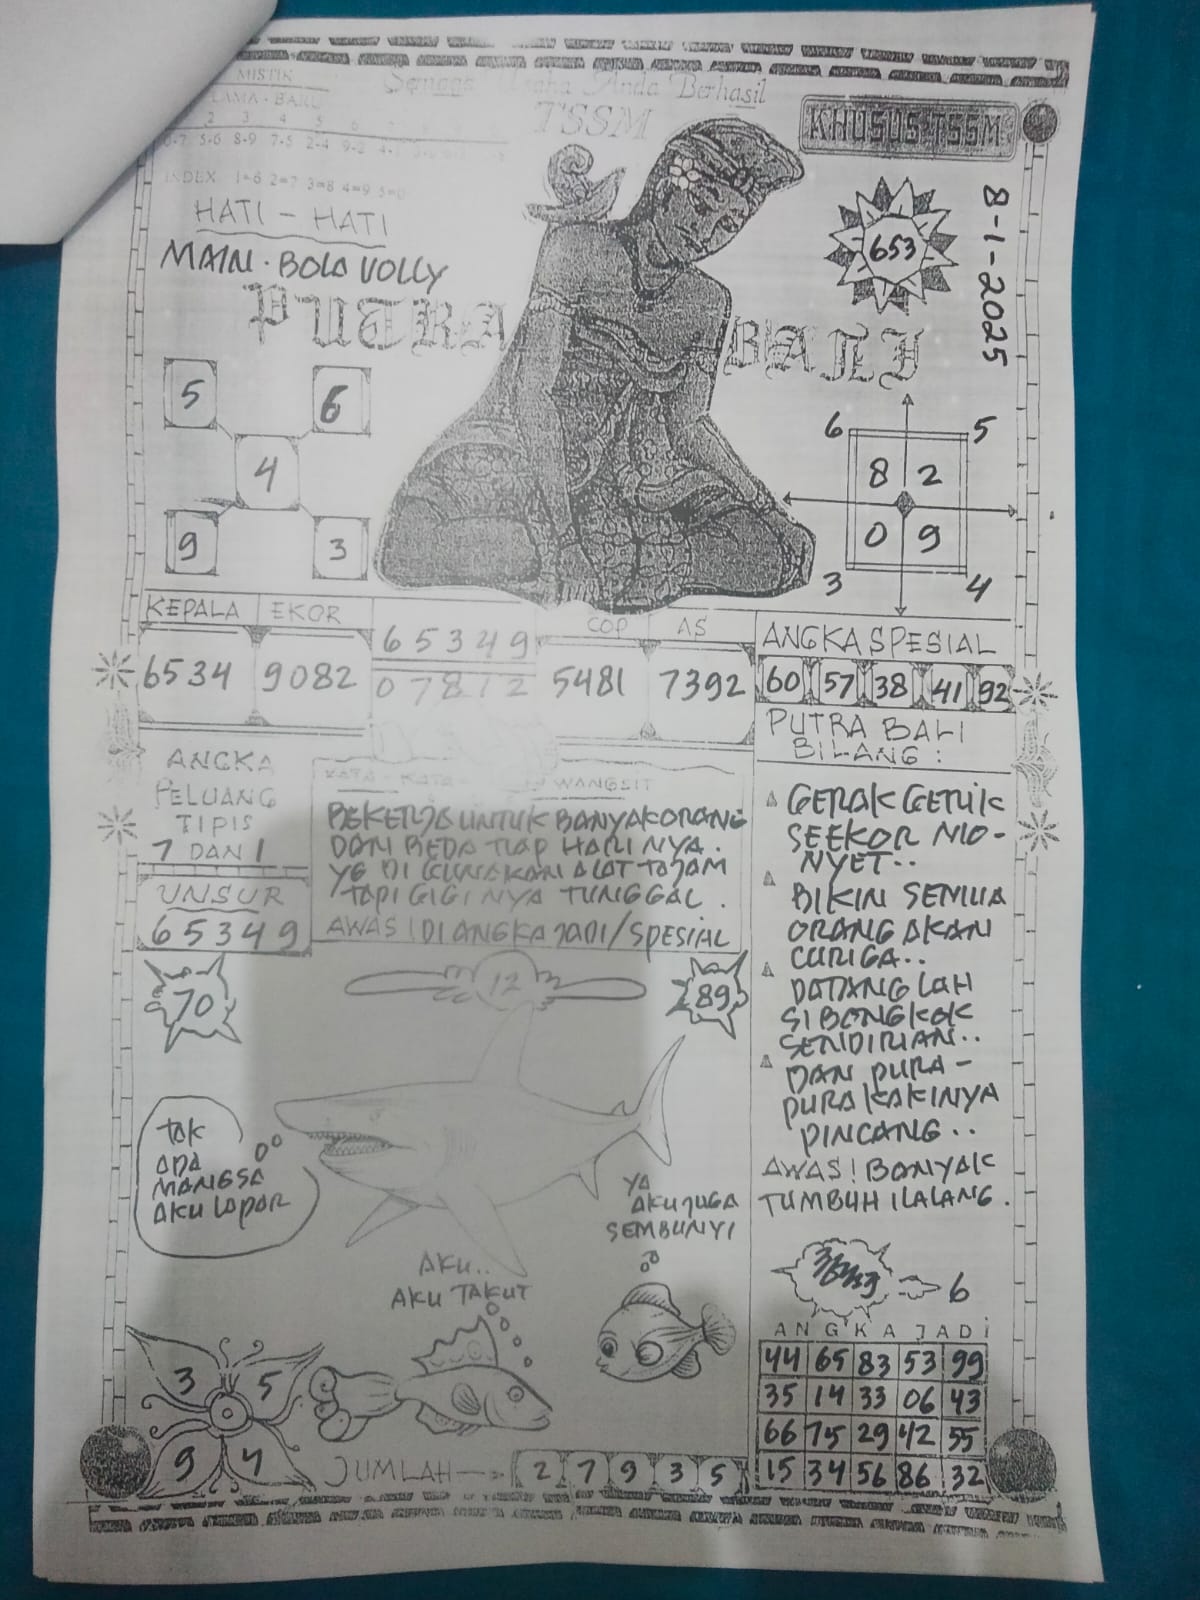 MISTIK
LAMA - BARU
2 3 4 5
0-7 5-6 8-9 7-5 2-4 9-2
INDEX 1=6 2=7 3=8 4=9 5=0
Anda Berhasil
TSSM
KHUSUS TSSM
8-1-2025
HATI - HATI
MAIN. BOLA VOLLY
653
PUTRA BALI
5 6
4
9 3
6 5
8 2
0 9
3 4
KEPALA EKOR
6534 9082
65349
07812
COP AS
5481 7392
ANGKA SPESIAL
60 57 38 41 92
PUTRA BALI
BILANG :
GERAK GERIK
SEEKOR MO-
NYET..
BIKIN SEMUA
ORANG AKAN
CURIGA..
DATANG LAH
SI BONGKOK
SENDIRIAN..
DAN PURA-
PURA KAKINYA
PINCANG..
AWAS! BANYAK
TUMBUH ILALANG.
ANGKA
PELUANG
TIPIS
7 DAN 1
UNSUR
65349
KATA - KATA WANGSIT
BEKERJA UNTUK BANYAK ORANG
DAN BEDA TIAP HARI NYA.
YG DI GUNAKAN ALAT TAJAM
TAPI GIGI NYA TUNGGAL.
AWAS! DI ANGKA JADI/SPESIAL
70
12
89
TAK
ADA
MANGSA
AKU LAPAR
YA
AKU JUGA
SEMBUNYI
AKU..
AKU TAKUT
3 5
9 4
JUMLAH 2 7 9 3 5
6
ANGKA JADI
44 65 83 53 99
35 14 33 06 43
66 75 29 42 55
15 34 56 86 32